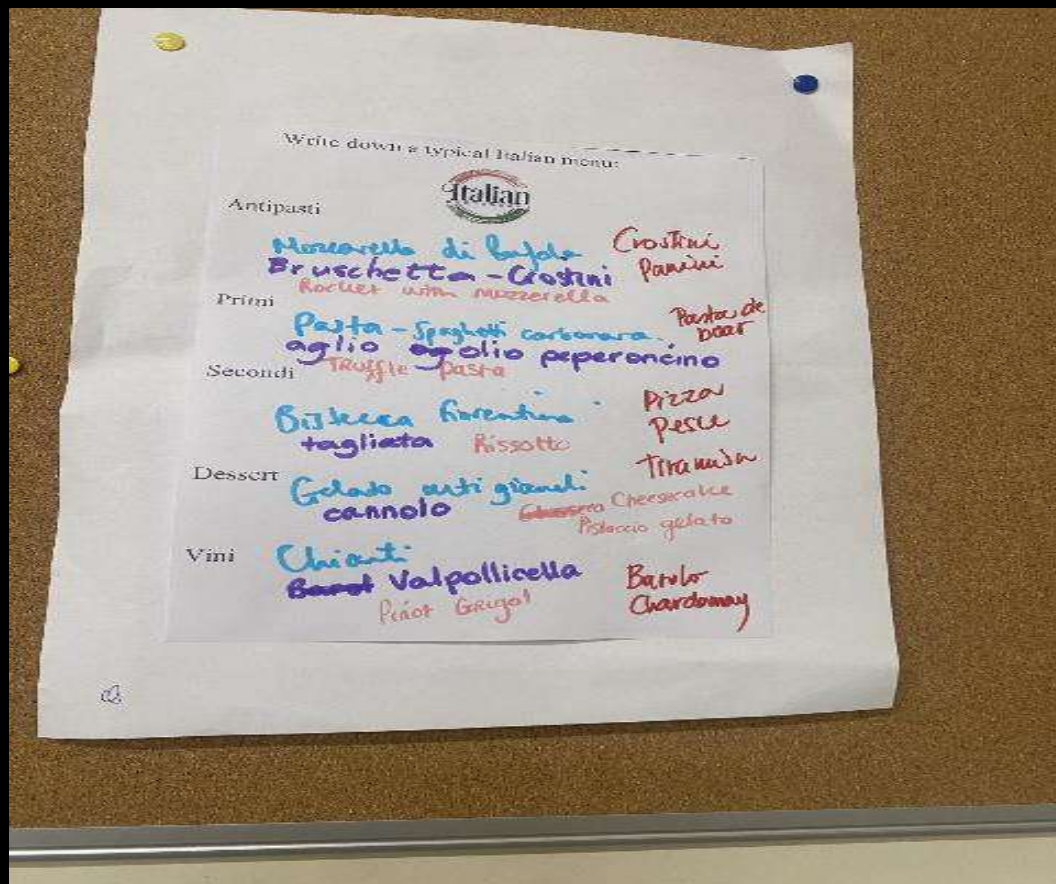 Write down a typical Italian menu:
Italian
Antipasti
Mozzarella di bufala Crostini
Bruschetta - Crostini Panini
Rocket with mozzerella
Primi
Pasta - Spaghetti carbonara Pasta de
aglio olio peperoncino
Truffle pasta
Secondi
Bistecca fiorentina Pizza
tagliata Rissotto Pesce
Dessert Tiramisu
Gelato artigianali
cannolo Cheesecake
Pistaccio gelato
Vini Chianti
Valpollicella Barolo
Pinot Grigo! Chardonnay